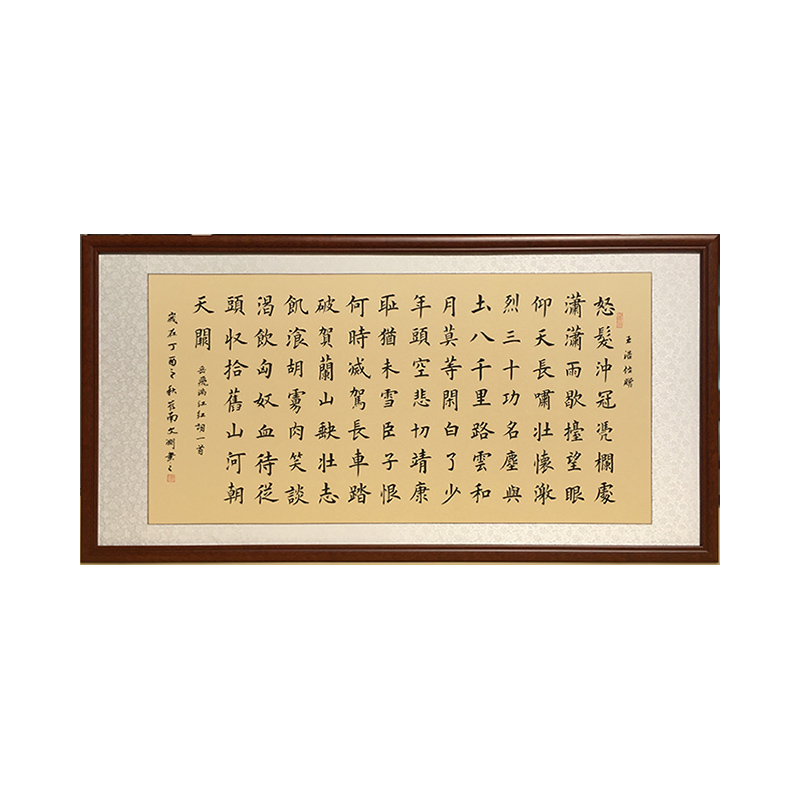 怒髮沖冠凭欄處
瀟瀟雨歇擡望眼
仰天長嘯壯懷激
烈三十功名塵與
土八千里路雲和
月莫等閑白了少
年頭空悲切靖康
恥猶未雪臣子恨
何時滅駕長車踏
破賀蘭山缺壯志
飢湌胡虜肉笑談
渴飲匈奴血待從
頭收拾舊山河朝
天闕
岳飛滿江紅詞一首
歲在丁酉之秋